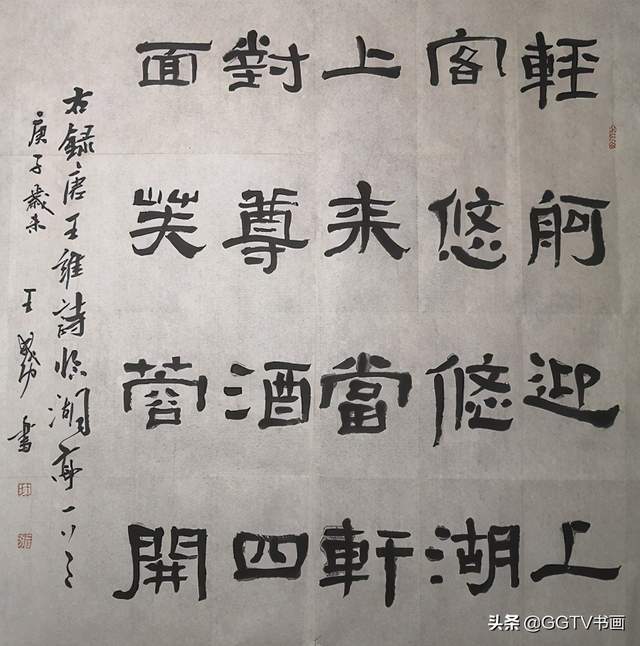 輕舸迎上
客悠悠湖
上来當軒
對尊酒四
面芙蓉開
右録唐王維詩臨湖亭一首
庚子歲末 王 書
头条 @GGTV书画